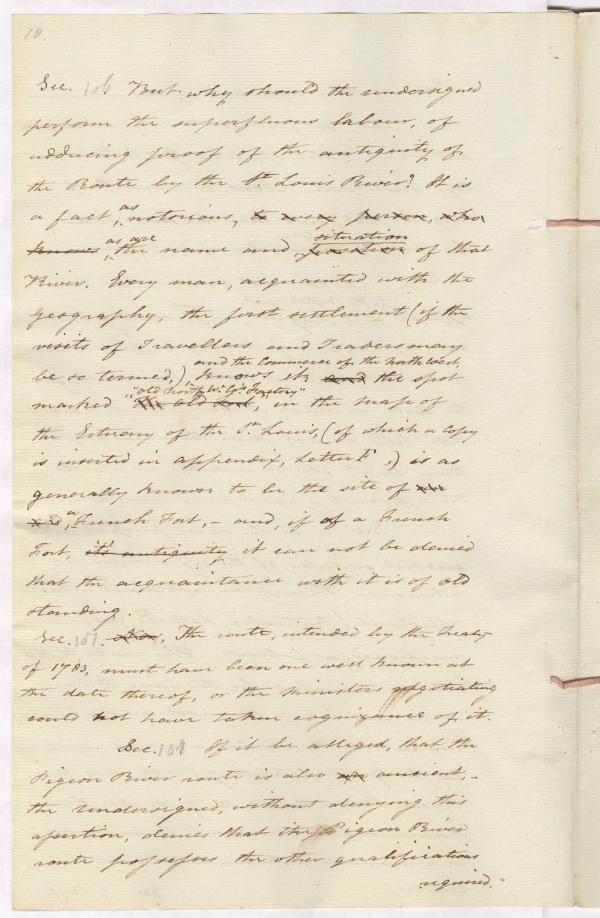 18.
Sec. 106 But why should the undersigned
perform the superfluous labour, of
adducing proof of the antiquity of
the Route by the St. Louis River? It is
as
a fact, notorious, to every person, who
as are situation
knows the name and position of that
River. Every man, acquainted with the
geography, the first settlement (if the
visits of Travellers and Traders may
and the Commerce of the North West,
be so termed,) knows it; and the spot
"Old North W. Co's. Factory"
marked old, in the map of
the Estuary of the St. Louis, (of which a copy
is inserted in appendix, Letter F ,) is as
generally known to be the site of
a French Fort, – and, if of a French
Fort, it's antiquity it can not be denied
that the acquaintance with it is of old
standing.
Sec. 107. The route, intended by the Treaty
of 1783, must have been one well known at
the date thereof, or the ministers negotiating
could not have taken cognizance of it.
Sec. 108 If it be alleged, that the
Pigeon River route is also ancient, –
the undersigned, without denying this
assertion, denies that the Pigeon River
route possesses the other qualifications
required.